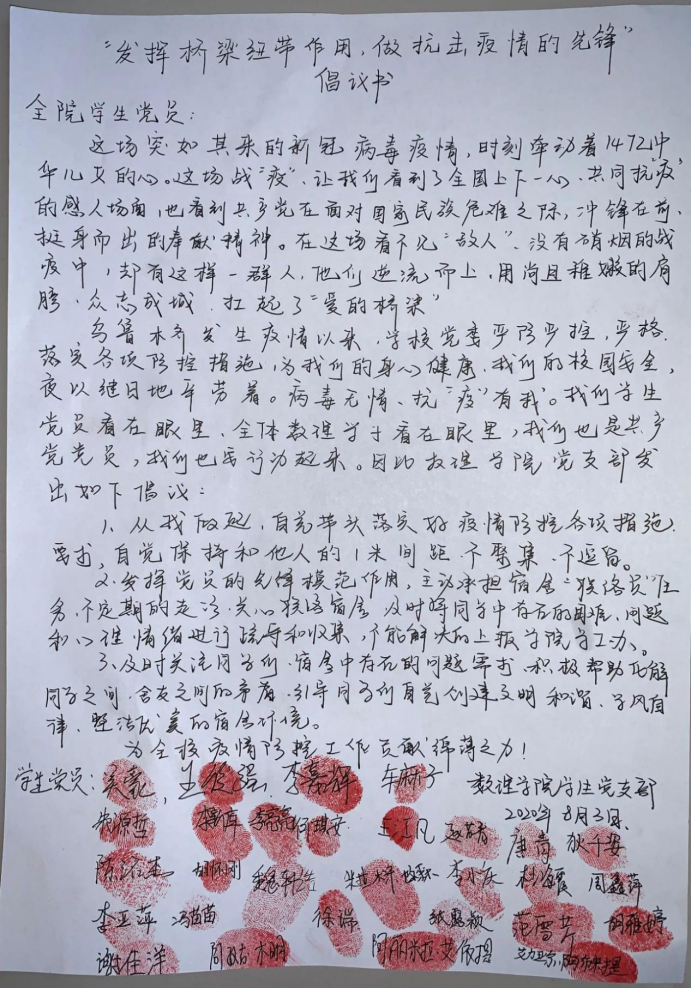 “发挥桥梁纽带作用,做抗击疫情的先锋”
倡议书
全院学生党员:
这场突如其来的新冠病毒疫情,时刻牵动着14亿中
华儿女的心。这场战“疫”,让我们看到了全国上下一心、共同抗“疫”
的感人场面,也看到共产党在面对国家民族危难之际,冲锋在前、
挺身而出的奉献精神。在这场看不见“敌人”、没有硝烟的战
疫中,却有这样一群人,他们逆流而上,用尚且稚嫩的肩
膀,众志成城,扛起了“爱的桥梁”
乌鲁木齐发生疫情以来,学校党委严防严控,严格
落实各项防控措施,为我们的身心健康、我们的校园安全,
夜以继日地辛劳着。病毒无情、抗“疫”有我。我们学生
党员看在眼里、全体数理学子看在眼里,我们也是共产
党党员,我们也要行动起来。因此数理学院党支部发
出如下倡议:
1、从我做起,自觉带头落实好疫情防控各项措施
要求,自觉保持和他人的1米间距、不聚集、不逗留。
2、发挥党员的先锋模范作用,主动承担宿舍“联络员”任
务,不定期的走访、关心联络宿舍,及时将同学中存在的困难、问题
和心理情绪进行疏导和收集,不能解决的上报学院学工办。
3、及时关注同学们、宿舍中存在的问题需求,积极帮助化解
同学之间、舍友之间的矛盾,引导同学们自觉创建文明和谐、学风自
律、整洁优美的宿舍环境。
为全校疫情防控工作贡献绵薄之力!
学生党员: 李嘉辉 车麻子 数理学院学生党支部
2020年8月3日
王江凡 康青 狄千安
胡怀刚 李小庆 周鑫萍
李亚萍 冯苗苗 徐瑞 范雪芹 胡雅婷
谢佳洋